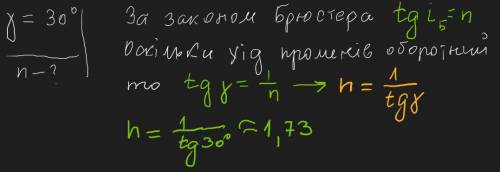 γ = 30°
n - ?
За законом брюстера tg iБ = n
Оскільки хід променів оборотний
то tg γ = 1/n → n = 1/tgγ
n = 1/tg30° ≈ 1,73